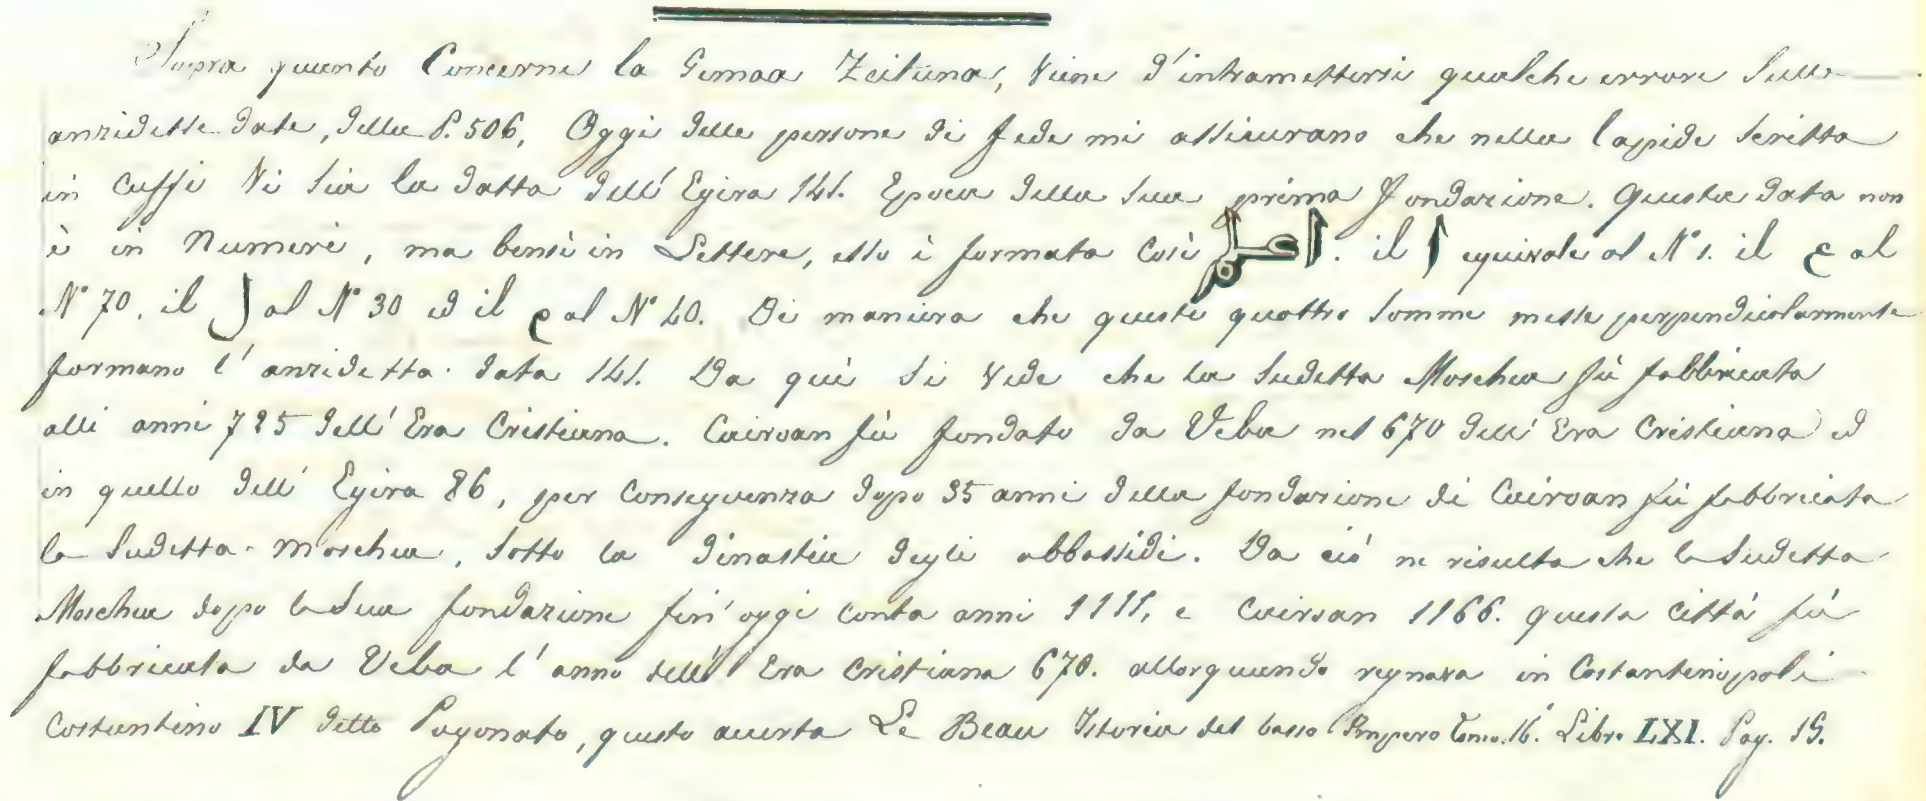 Sopra quanto Concerne la Gemaa Zeituna, viene d'intramettersi qualche errore sulle
anzidette date, della P. 506. Oggi delle persone di fede mi assicurano che nella lapide scritta
in cuffi vi sia la datta dell' Egira 141. Epoca della sua prima fondazione. Questa data non
è in Numeri, ma bensì in Lettere, esso è formata così اعلم. il ا equivale al N° 1. il ع al
N° 70. il ل al N° 30 ed il م al N° 40. Di maniera che queste quattro somme messe perpendicolarmente
formano l' anzidetta data 141. Da quì si vede che la sudetta Moschea fù fabbricata
alli anni 725 dell' Era Cristiana. Cairoan fù fondato da Ucba nel 670 dell' Era Cristiana ed
in quello dell' Egira 86, per conseguenza dopo 35 anni della fondazione di Cairoan fù fabbricata
la sudetta moschea, sotto la dinastia degli abbassidi. Da ciò ne risulta che la sudetta
Moschea dopo la sua fondazione fin' oggi conta anni 1111, e Cairoan 1166. questa città fù
fabbricata da Ucba l' anno dell' Era Cristiana 670. allorquando regnava in Costantinopoli
Costantino IV detto Pogonato, questo acerta Le Beau Istoria del basso Impero Tomo. 16. Libro LXI. Pag. 19.